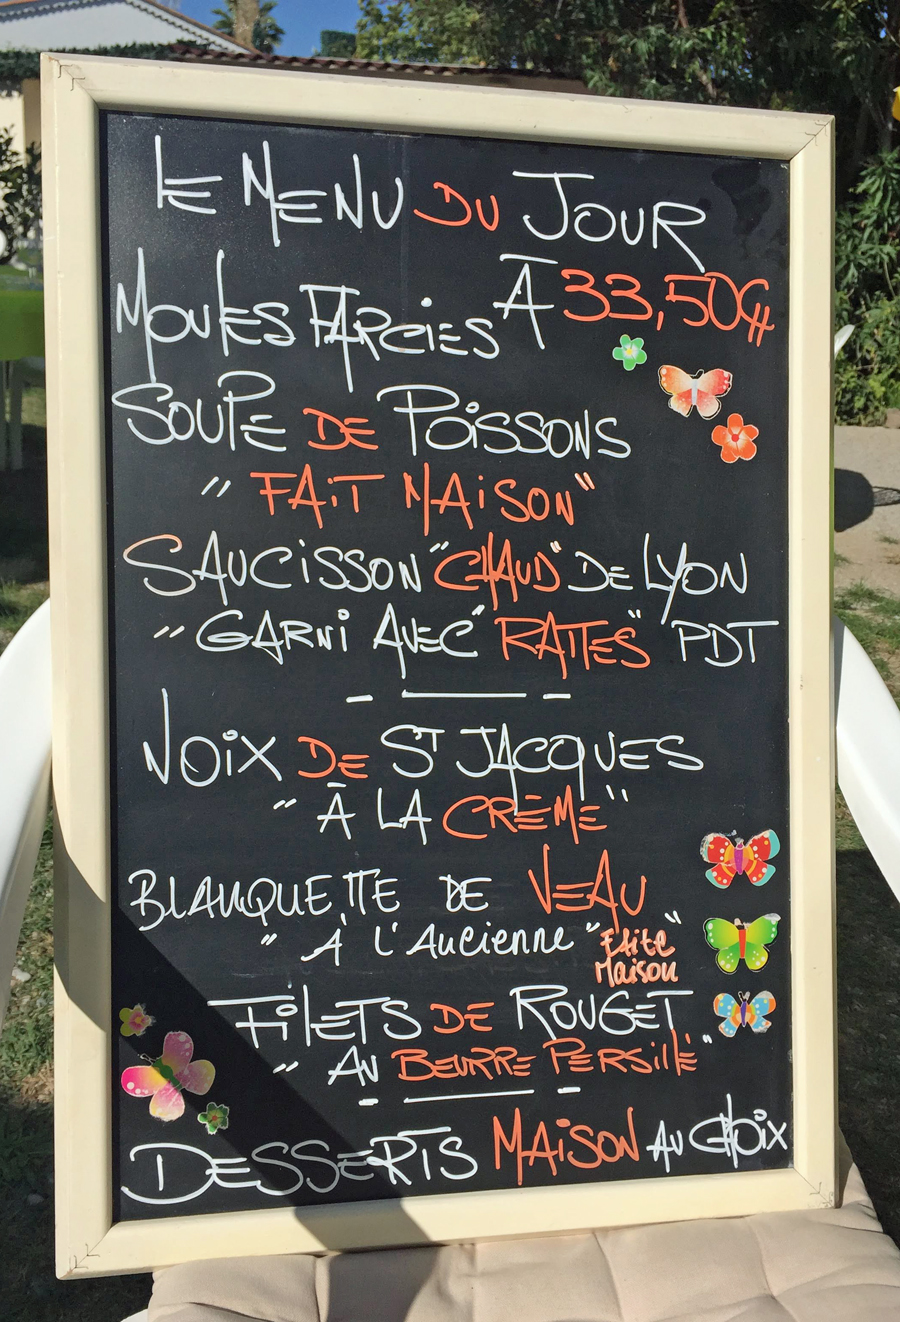 LE MENU DU JOUR
À 33,50€
MOULES FARCIES
SOUPE DE POISSONS
"FAiT MAiSON"
SAUCiSSON "CHAUD" DE LYON
"GARNi AVEC "RATTES" PDT
NOiX DE ST JACQUES
"À LA CRÈME"
BLANQUETTE DE VEAU
"À L'Ancienne "FAite
Maison"
FiLETS DE ROUGET
"AU BEURRE PERSiLLÉ"
DESSERTS MAiSON AU CHOiX